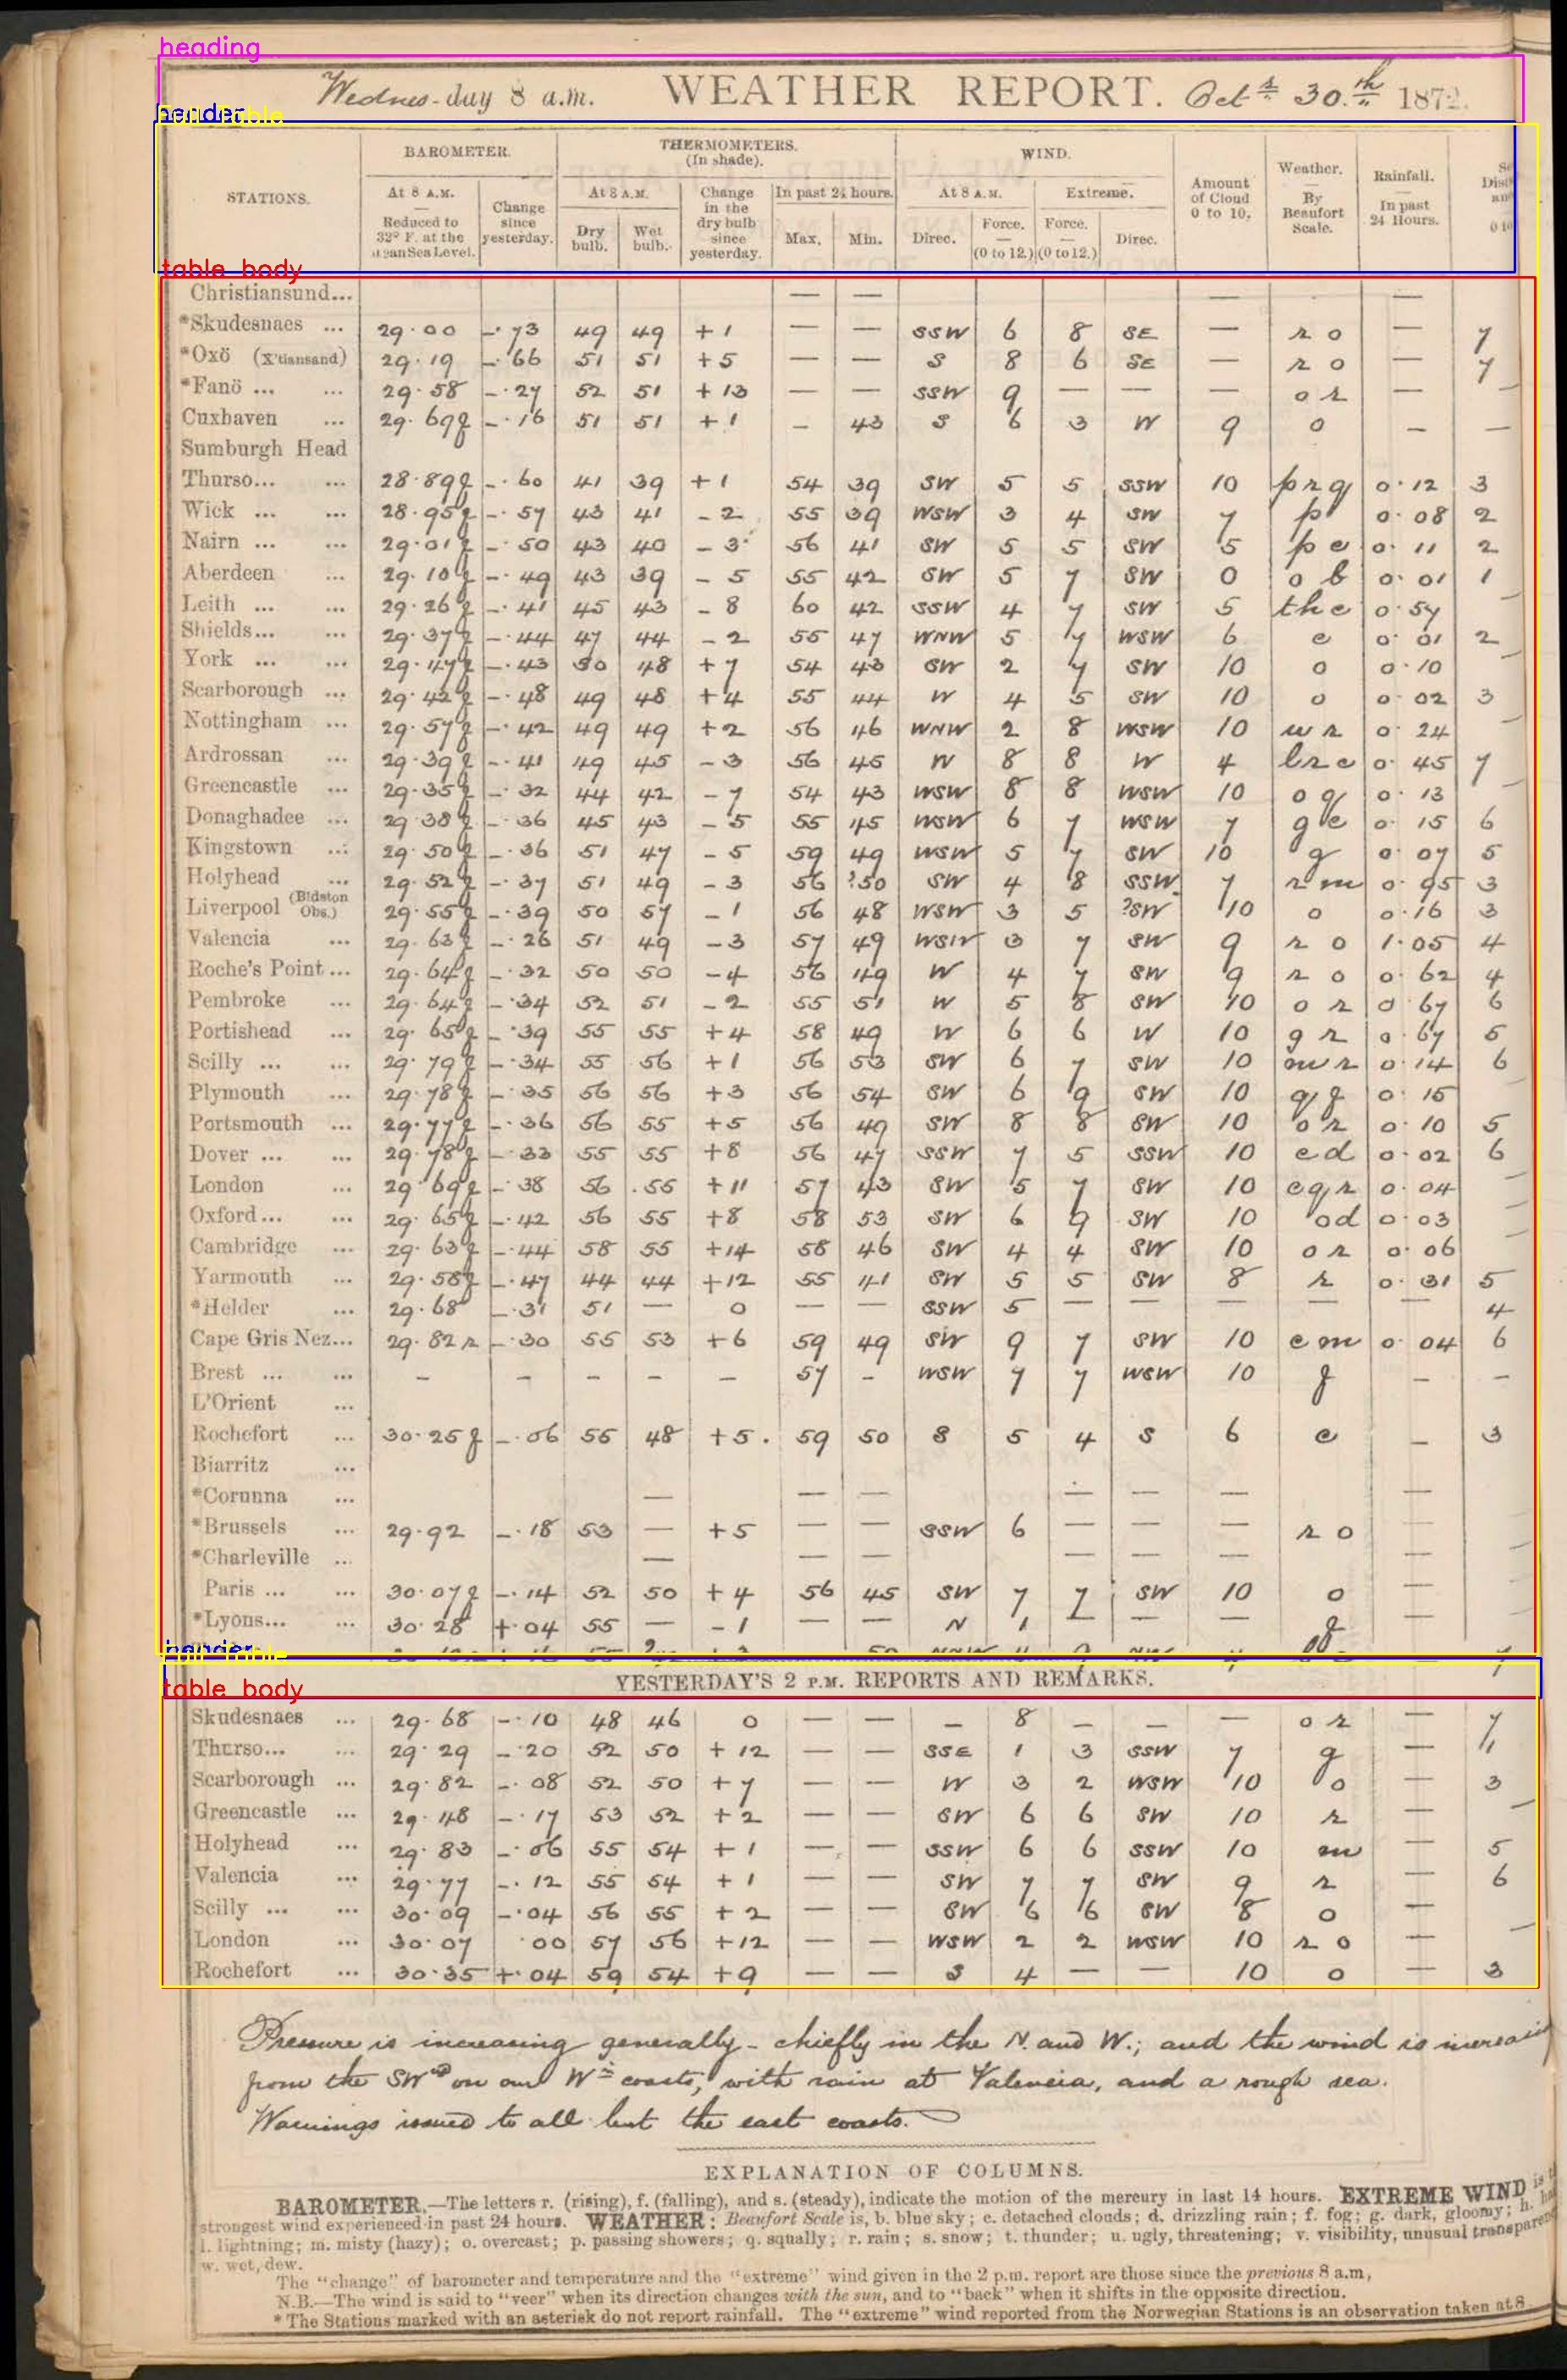 heading
Wednes-day 8 a.m. WEATHER REPORT. Oct.r 30.th 1872.
header
full table
STATIONS. BAROMETER. THERMOMETERS. (In shade). WIND. Amount of Cloud 0 to 10. Weather. — By Beaufort Scale. Rainfall. — In past 24 Hours.
At 8 A.M. Reduced to 32° F. at the Mean Sea Level. Change since yesterday. At 8 A.M. Dry bulb. Wet bulb. Change in the dry bulb since yesterday. In past 24 hours. Max. Min. At 8 A.M. Direc. Force. — (0 to 12.) Extreme. Force. — (0 to 12.) Direc.
table body
Christiansund... — — — — —
*Skudesnaes ... 29.00 -.73 49 49 +1 — — SSW 6 8 SE — r o — 7
*Oxö (X'tiansand) 29.19 -.66 51 51 +5 — — S 8 6 SE — r o — 7
*Fanö ... ... 29.58 -.27 52 51 +13 — — SSW 9 — — — o r — —
Cuxhaven ... 29.69f -.16 51 51 +1 – 43 S 6 3 W 9 o – —
Sumburgh Head
Thurso... ... 28.89f -.60 41 39 +1 54 39 SW 5 5 SSW 10 prq 0.12 3
Wick ... ... 28.95f -.57 43 41 -2 55 39 WSW 3 4 SW 7 p 0.08 2
Nairn ... ... 29.01f -.50 43 40 -3 56 41 SW 5 5 SW 5 pc 0.11 2
Aberdeen ... 29.10f -.49 43 39 -5 55 42 SW 5 7 SW 0 o b 0.01 1
Leith ... ... 29.26f -.41 45 43 -8 60 42 SSW 4 7 SW 5 the 0.57 —
Shields... ... 29.37f -.44 47 44 -2 55 47 WNW 5 7 WSW 6 c 0.01 2
York ... ... 29.47f -.43 50 48 +7 54 43 SW 2 7 SW 10 o 0.10 —
Scarborough ... 29.42f -.48 49 48 +4 55 44 W 4 5 SW 10 o 0.02 3
Nottingham ... 29.57f -.42 49 49 +2 56 46 WNW 2 8 WSW 10 w r 0.24 —
Ardrossan ... 29.39f -.41 49 45 -3 56 45 W 8 8 W 4 brc 0.45 7
Greencastle ... 29.35f -.32 44 42 -7 54 43 WSW 8 8 WSW 10 o q 0.13 —
Donaghadee ... 29.38f -.36 45 43 -5 55 45 WSW 6 7 WSW 7 g c 0.15 6
Kingstown ... 29.50f -.36 51 47 -5 59 49 WSW 5 7 SW 10 g 0.07 5
Holyhead ... 29.52f -.37 51 49 -3 56 ?50 SW 4 8 SSW 7 r m 0.95 3
Liverpool (Bidston Obs.) 29.55f -.39 50 57 -1 56 48 WSW 3 5 ?SW 10 o 0.16 3
Valencia ... 29.63f -.26 51 49 -3 57 49 WSW 3 7 SW 9 r o 1.05 4
Roche's Point... 29.64f -.32 50 50 -4 56 49 W 4 7 SW 9 r o 0.62 4
Pembroke ... 29.64f -.34 52 51 -2 55 51 W 5 8 SW 10 o r 0.67 6
Portishead ... 29.65f -.39 55 55 +4 58 49 W 6 6 W 10 g r 0.67 5
Scilly ... ... 29.79f -.34 55 56 +1 56 53 SW 6 7 SW 10 m r 0.14 6
Plymouth ... 29.78f -.35 56 56 +3 56 54 SW 6 9 SW 10 q f 0.15
Portsmouth ... 29.77f -.36 56 55 +5 56 49 SW 8 8 SW 10 o r 0.10 5
Dover ... ... 29.78f -.33 55 55 +8 56 47 SSW 7 5 SSW 10 c d 0.02 6
London ... 29.69f -.38 56 55 +11 57 43 SW 5 7 SW 10 cqr 0.04 —
Oxford... ... 29.65f -.42 56 55 +8 58 53 SW 6 9 SW 10 od 0.03 —
Cambridge ... 29.63f -.44 58 55 +14 58 46 SW 4 4 SW 10 o r 0.06 —
Yarmouth ... 29.58f -.47 44 44 +12 55 41 SW 5 5 SW 8 r 0.31 5
*Helder ... 29.68 -.31 51 — 0 — — SSW 5 — — — — — 4
Cape Gris Nez... 29.82r -.30 55 53 +6 59 49 SW 9 7 SW 10 c m 0.04 6
Brest ... ... – – – – – 57 – WSW 7 7 WSW 10 f – –
L'Orient ...
Rochefort ... 30.25f -.06 55 48 +5. 59 50 S 5 4 S 6 c – 3
Biarritz ...
*Corunna ... — — — — — — —
*Brussels ... 29.92 -.18 53 — +5 — — SSW 6 — — — r o —
*Charleville ... — — — — — — —
Paris ... ... 30.07f -.14 52 50 +4 56 45 SW 7 7 SW 10 o —
*Lyons... ... 30.28 +.04 55 — -1 — — N 1 — — — f —
header
full table
YESTERDAY'S 2 P.M. REPORTS AND REMARKS.
table body
Skudesnaes ... 29.68 -.10 48 46 0 — — — 8 — — — o r — 7
Thurso... ... 29.29 -.20 52 50 +12 — — SSE 1 3 SSW 7 g — 1
Scarborough ... 29.82 -.08 52 50 +7 — — W 3 2 WSW 10 o — 3
Greencastle ... 29.48 -.17 53 52 +2 — — SW 6 6 SW 10 r — —
Holyhead ... 29.83 -.06 55 54 +1 — — SSW 6 6 SSW 10 m — 5
Valencia ... 29.77 -.12 55 54 +1 — — SW 7 7 SW 9 r — 6
Scilly ... ... 30.09 -.04 56 55 +2 — — SW 6 6 SW 8 o —
London ... 30.07 .00 57 56 +12 — — WSW 2 2 WSW 10 r o — —
Rochefort ... 30.35 +.04 59 54 +9 — — S 4 — — 10 o — 3
Pressure is increasing generally - chiefly in the N. and W.; and the wind is
from the SWd on our Wn coasts, with rain at Valencia, and a rough sea.
Warnings issued to all but the east coasts.
EXPLANATION OF COLUMNS.
BAROMETER.—The letters r. (rising), f. (falling), and s. (steady), indicate the motion of the mercury in last 14 hours. EXTREME WIND is
strongest wind experienced in past 24 hours. WEATHER: Beaufort Scale is, b. blue sky; c. detached clouds; d. drizzling rain; f. fog; g. dark, gloomy; h.
l. lightning; m. misty (hazy); o. overcast; p. passing showers; q. squally; r. rain; s. snow; t. thunder; u. ugly, threatening; v. visibility, unusual
w. wet, dew.
The "change" of barometer and temperature and the "extreme" wind given in the 2 p.m. report are those since the previous 8 a.m,
N.B.—The wind is said to "veer" when its direction changes with the sun, and to "back" when it shifts in the opposite direction.
* The Stations marked with an asterisk do not report rainfall. The "extreme" wind reported from the Norwegian Stations is an observation taken at 8